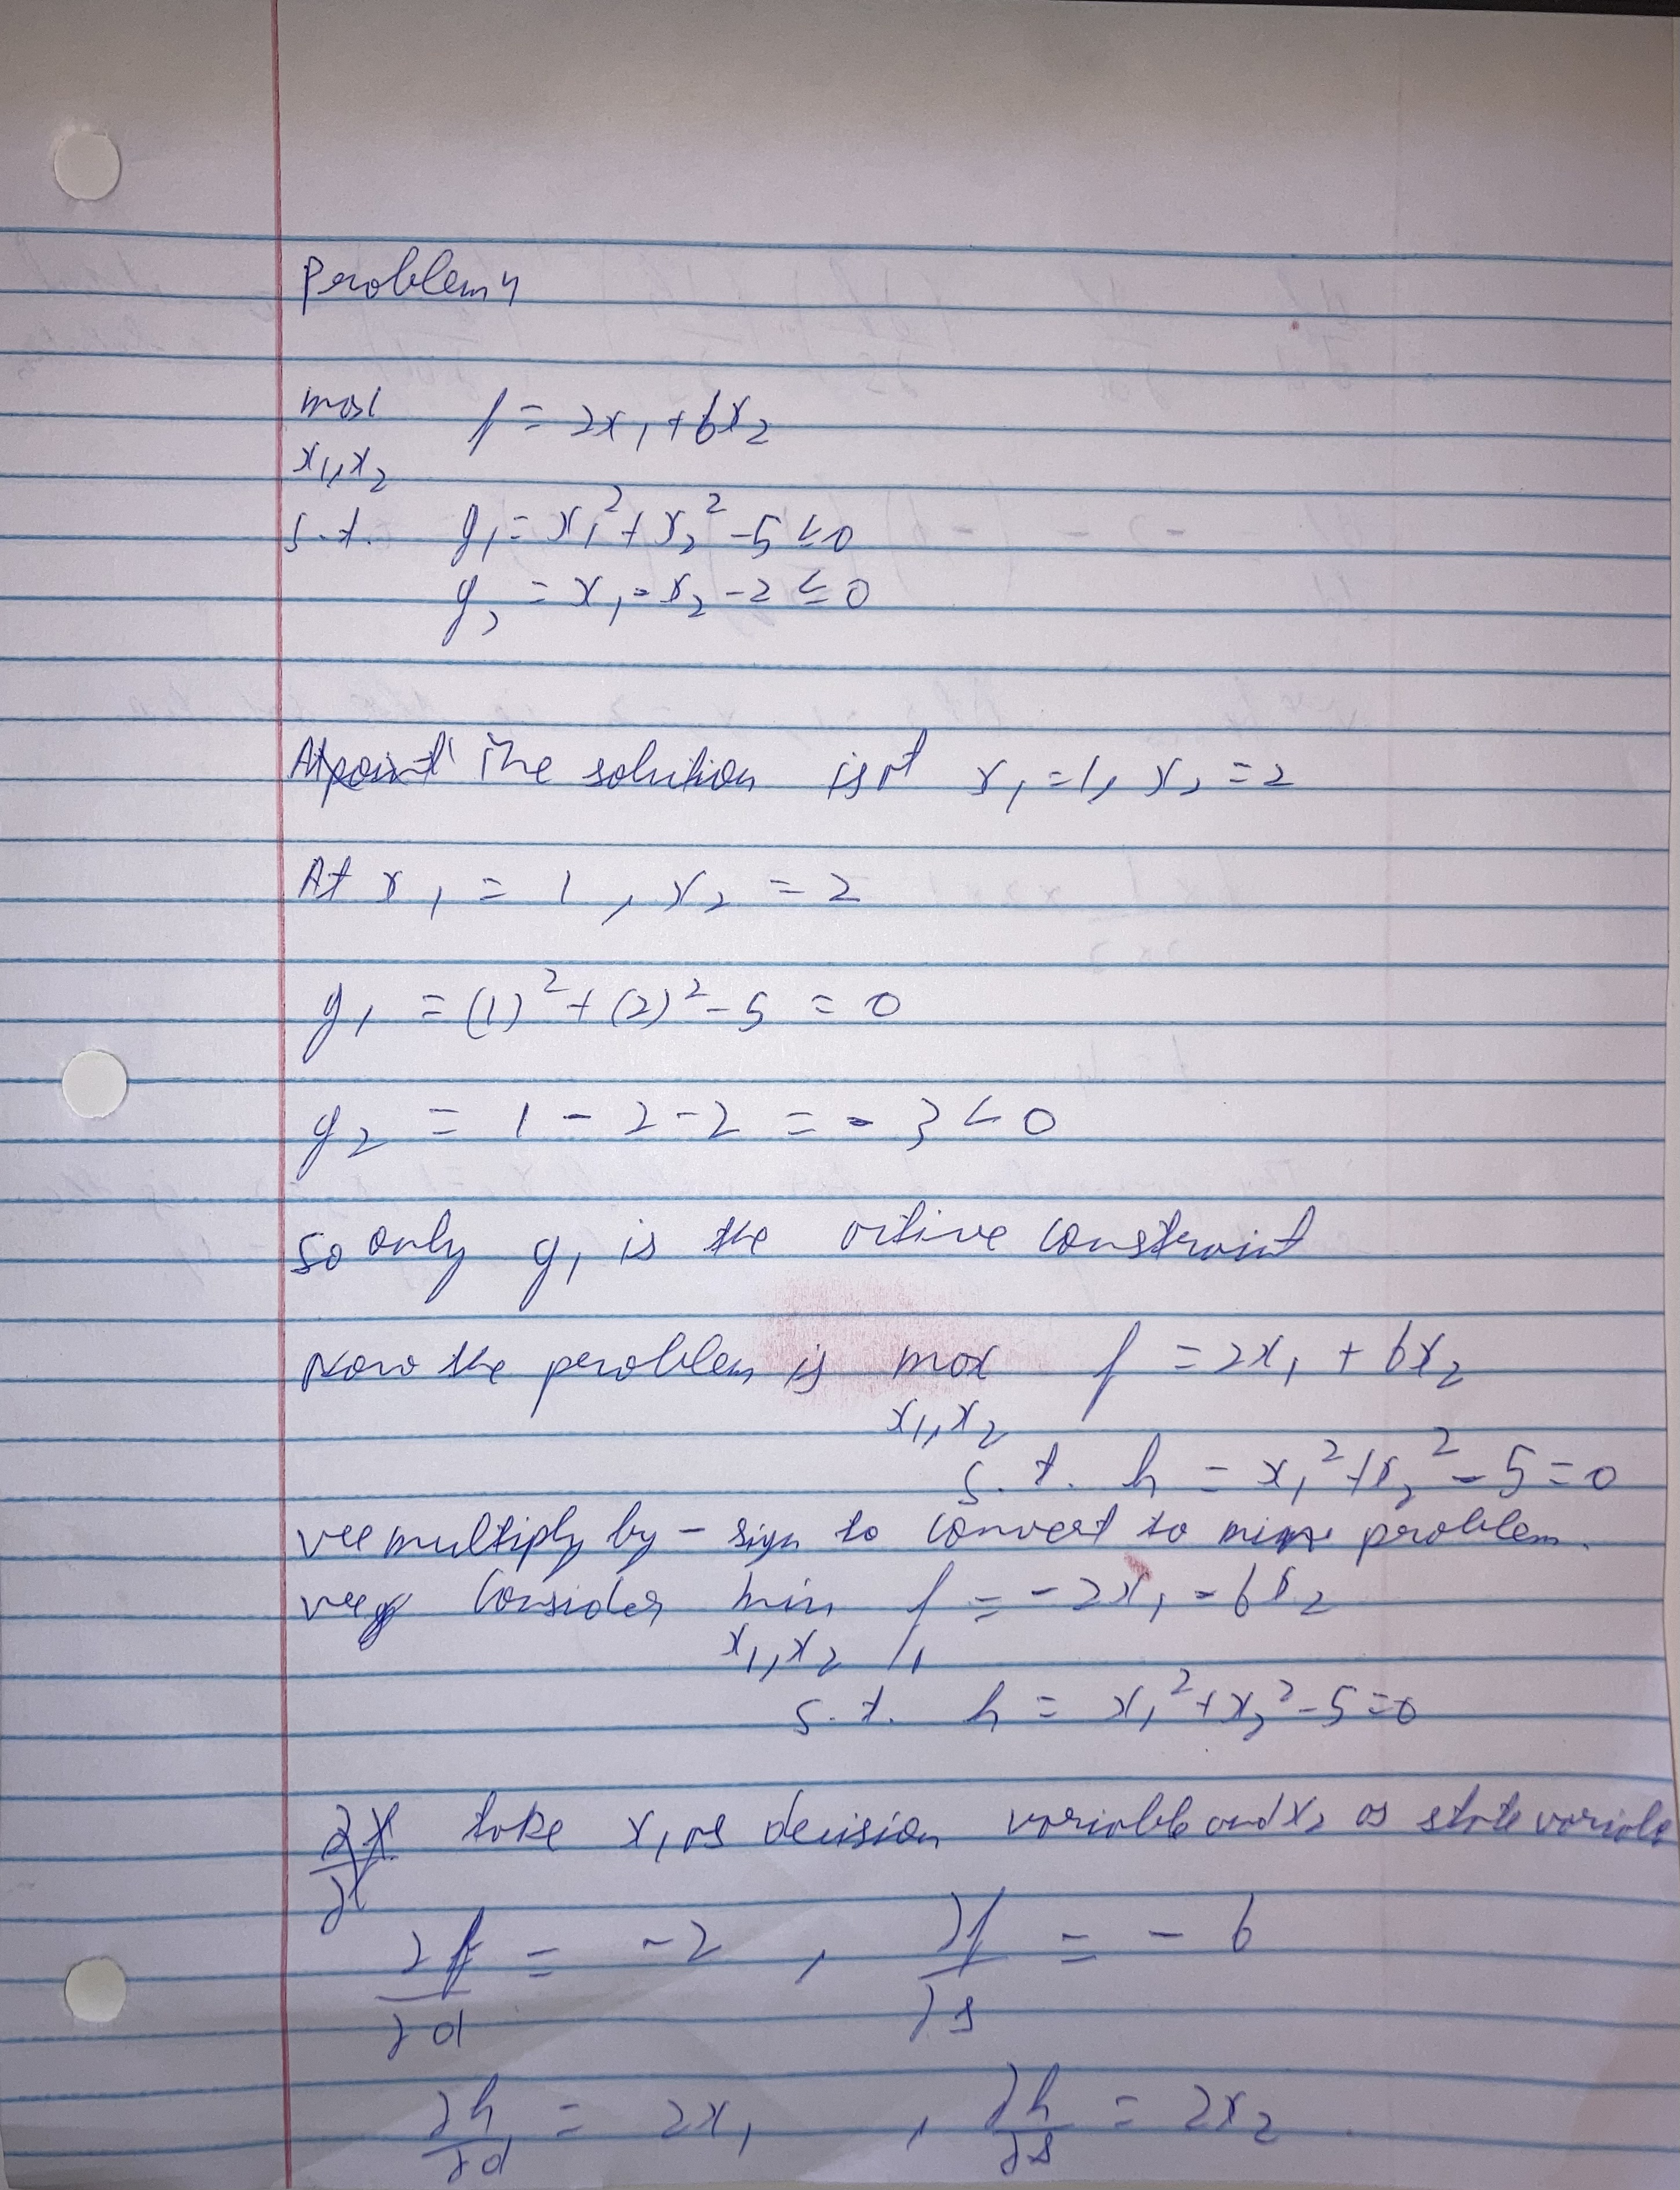 Problem 4
max f = 2x₁ + 6x₂
x₁,x₂
s.t. g₁ = x₁² + x₂² - 5 ≤ 0
g₂ = x₁ - x₂ - 2 ≤ 0
At point The solution is at x₁ = 1, x₂ = 2
At x₁ = 1, x₂ = 2
g₁ = (1)² + (2)² - 5 = 0
g₂ = 1 - 2 - 2 = -3 < 0
So only g₁ is the active constraint
Now the problem is max f = 2x₁ + 6x₂
x₁,x₂
s.t. h = x₁² + x₂² - 5 = 0
we multiply by - sign to convert to min problem.
we consider min f₁ = -2x₁ - 6x₂
x₁,x₂
s.t. h = x₁² + x₂² - 5 = 0
take x₁ as decision variable and x₂ as state variable
∂f/∂d = -2, ∂f/∂s = -6
∂h/∂d = 2x₁, ∂h/∂s = 2x₂